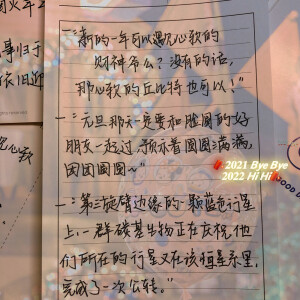 国火年2
-:"新的一年可以遇见心软的
财神爷么?没有的话,
那心软的丘比特也可以!"
事归于
依旧近
-:"元旦那天一定要和脸圆的好
朋友一起过,预示着圆圆满满,
团团圆圆~"
2021 Bye Bye
2022 Hi Hi
-:"第三旋臂边缘的一颗蓝色行星
上,一群碳基生物正在庆祝他
们所在的行星又在该恒星系里,
完成了一次公转。"